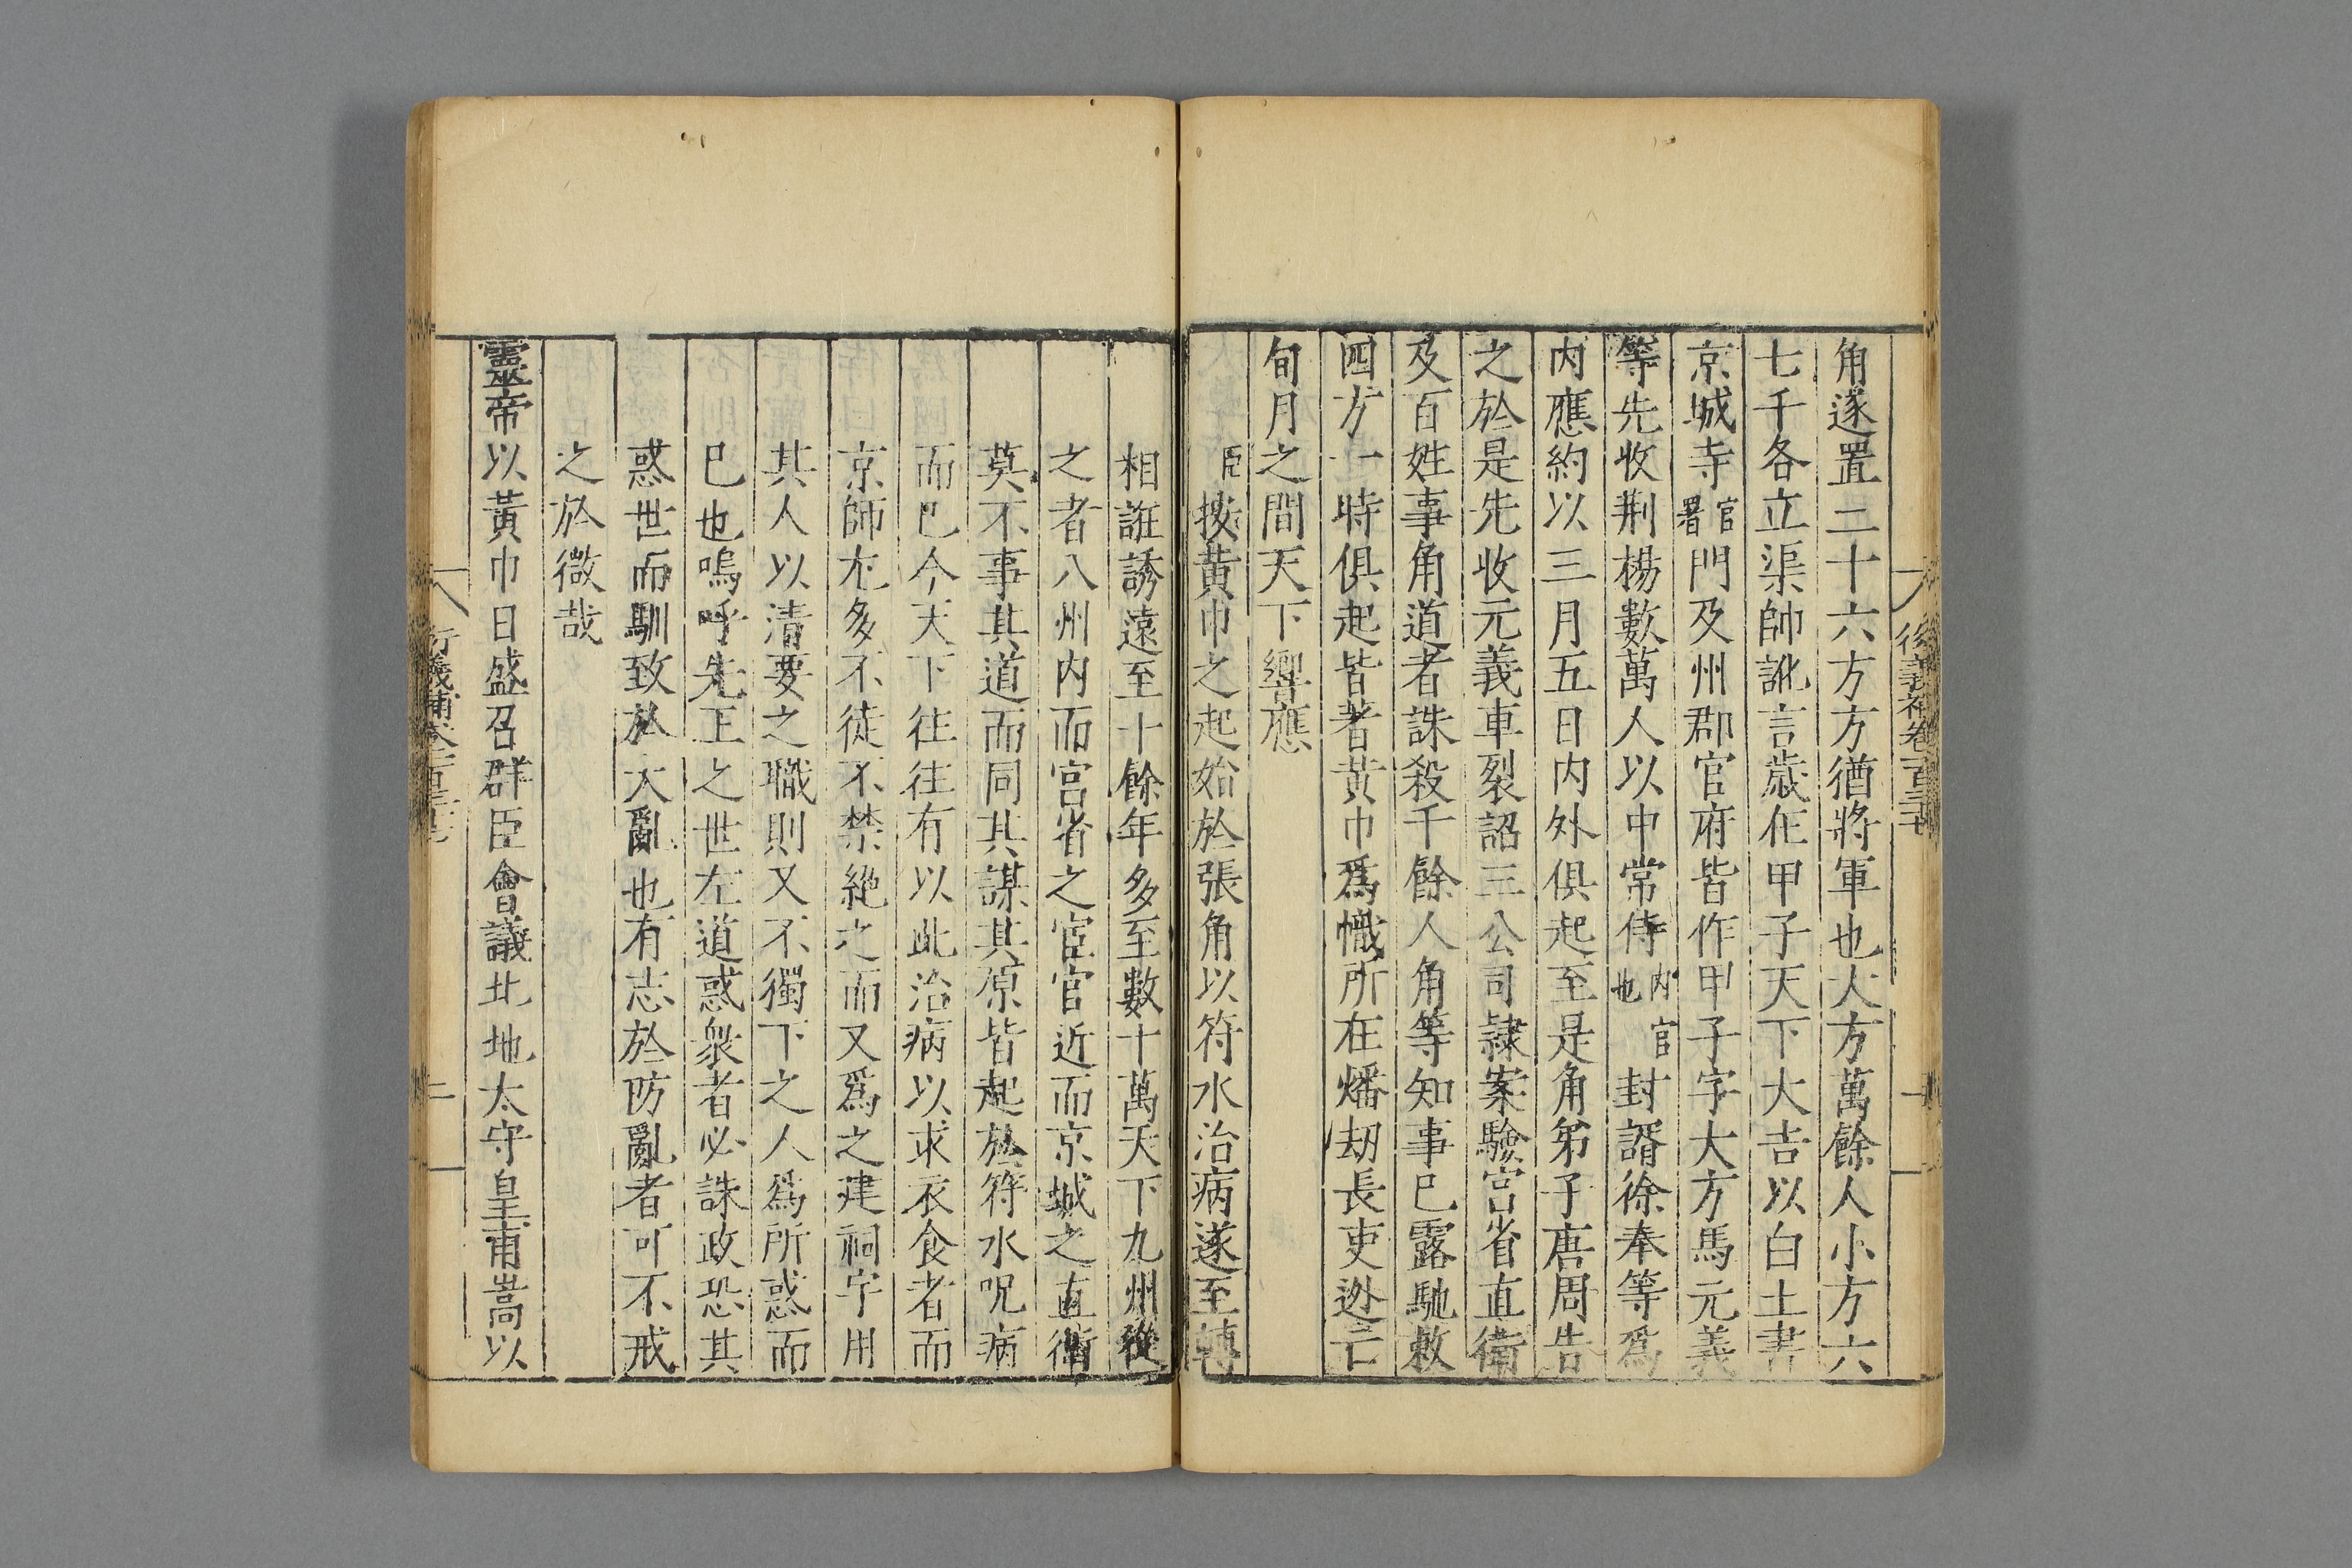 角遂置三十六方方猶將軍也大方萬餘人小方六
七千各立渠帥訛言歲在甲子天下大吉以白土書
京城寺官署門及州郡官府皆作甲子字大方馬元義
等先收荆楊數萬人以中常侍內官也封諝徐奉等爲
內應約以三月五日內外俱起至是角弟子唐周告
之於是先收元義車裂詔三公司隷案驗宮省直衛
及百姓事角道者誅殺千餘人角等知事已露馳敕
四方一時俱起皆著黃巾爲幟所在燔刼長吏逊亡
旬月之間天下響應
臣按黃巾之起始於張角以符水治病遂至轉
相誑誘遠至十餘年多至數十萬天下九州從
之者八州內而宮省之宦官近而京城之直衛
莫不事其道而同其謀其原皆起於符水呪病
而已今天下往往有以此治病以求衣食者而
京師尤多不徒不禁絶之而又爲之建祠宇用
其人以清要之職則又不獨下之人爲所惑而
已也嗚呼先王之世左道惑衆者必誅政恐其
惑世而馴致於大亂也有志於防亂者可不戒
之於微哉
靈帝以黃巾日盛召群臣會議北地太守皇甫嵩以